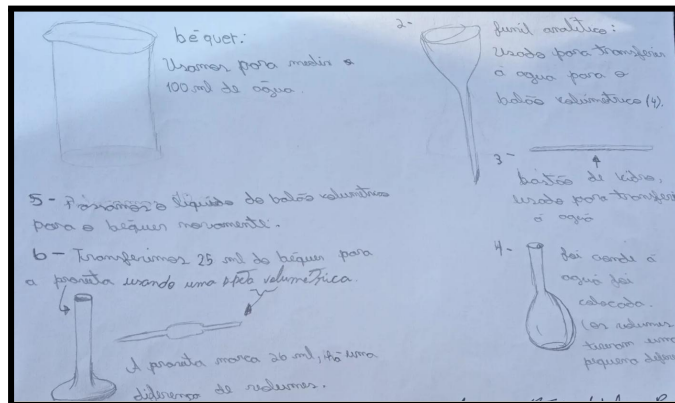 béquer:
Usamos para medir o
100 ml de água.
2- funil analítico:
Usado para transferir
a agua para o
balão volumétrico (4).
3-
bastão de vidro,
usado para transferi
a agua
4- foi aonde a
agua foi
colocada.
(os volumes
tiveram uma
pequena difere
5- Passamos o líquido do balão volumetrico
para o béquer novamente.
6- Transferimos 25 ml do béquer para
a proveta usando uma volumétrica.
A proveta marca 26 ml, há uma
diferença de volumes.